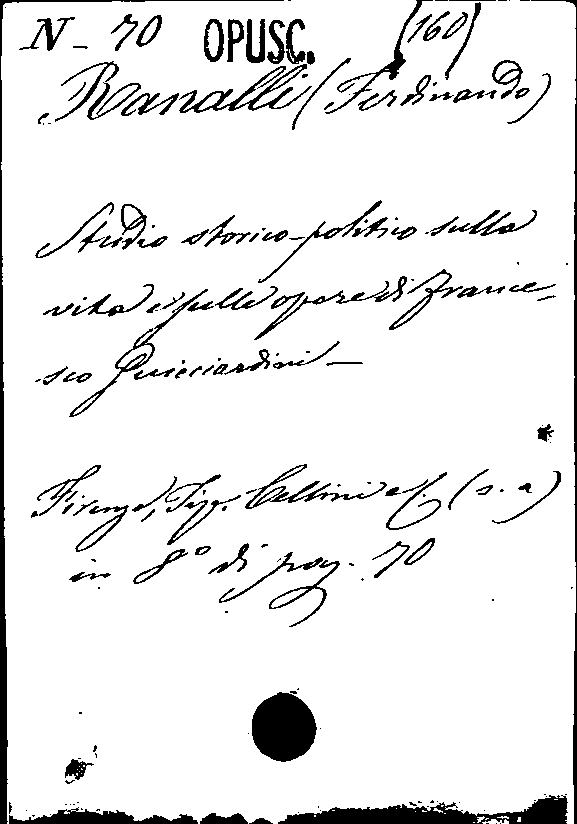 N- 70 OPUSC. (160)
Ranalli (Ferdinando)
Studio storico-politico sulla
vita e sulle opere di France-
sco Guicciardini -
Firenze, Tip. Cellini e C. (s. a)
in 8° di pag. 70